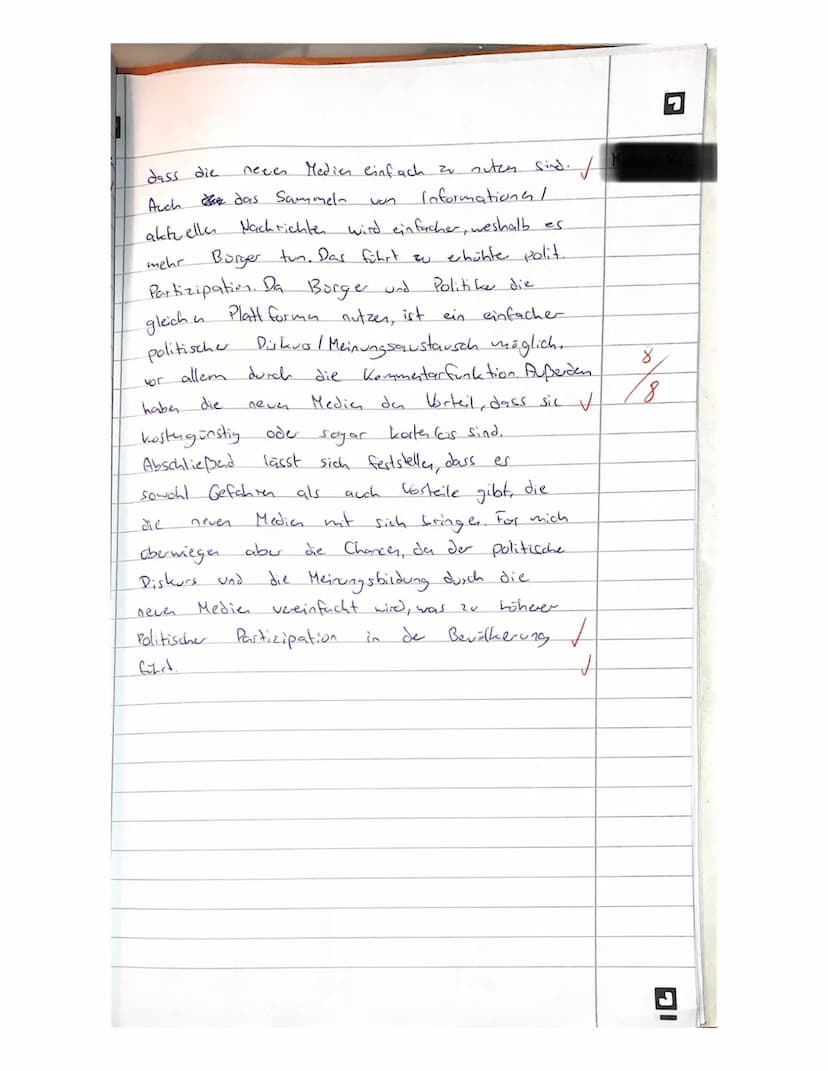 dass die neuen Medien einfach zu nutzen sind.
Auch das Sammeln von Informationen/
aktuellen Nachrichten wird einfacher, weshalb es
mehr Bürger tun. Das führt zu erhöhte polit.
Partizipation. Da Bürger und Politiker die
gleichen Plattformen nutzen, ist ein einfacher
politischer Diskurs/Meinungsaustausch möglich,
vor allem durch die Kommentarfunktion. Außerdem
haben die neuen Medien den Vorteil, dass sie
kostengünstig oder sogar kostenlos sind.
Abschließend lässt sich feststellen, dass es
sowohl Gefahren als auch Vorteile gibt, die
die neuen Medien mit sich bringen. Für mich
überwiegen aber die Chancen, da der politische
Diskurs und die Meinungsbildung durch die
neuen Medien vereinfacht wird, was zu höherer
Politischer Partizipation in der Bevölkerung
führt.
8/8